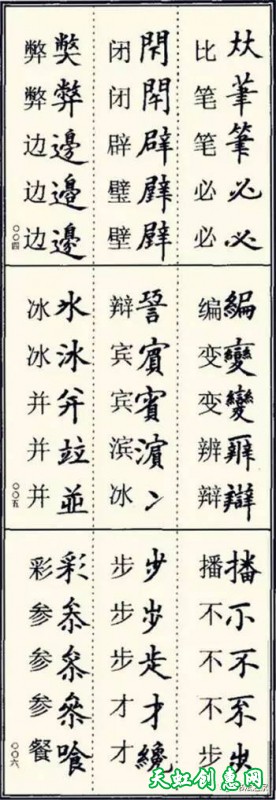 筆必必
比笔笔必必
辟
闭闭辟璧壁
弊邊邊
弊弊边边边
〇〇四
編變變辯
编变变辨辩
賓賓濱
辩宾宾滨冰
冰并竝並
冰冰并并并
〇〇五
播不不步
播不不不步
步步才纔
步步步才才
彩
彩参参参餐
〇〇六
天虹创惠网